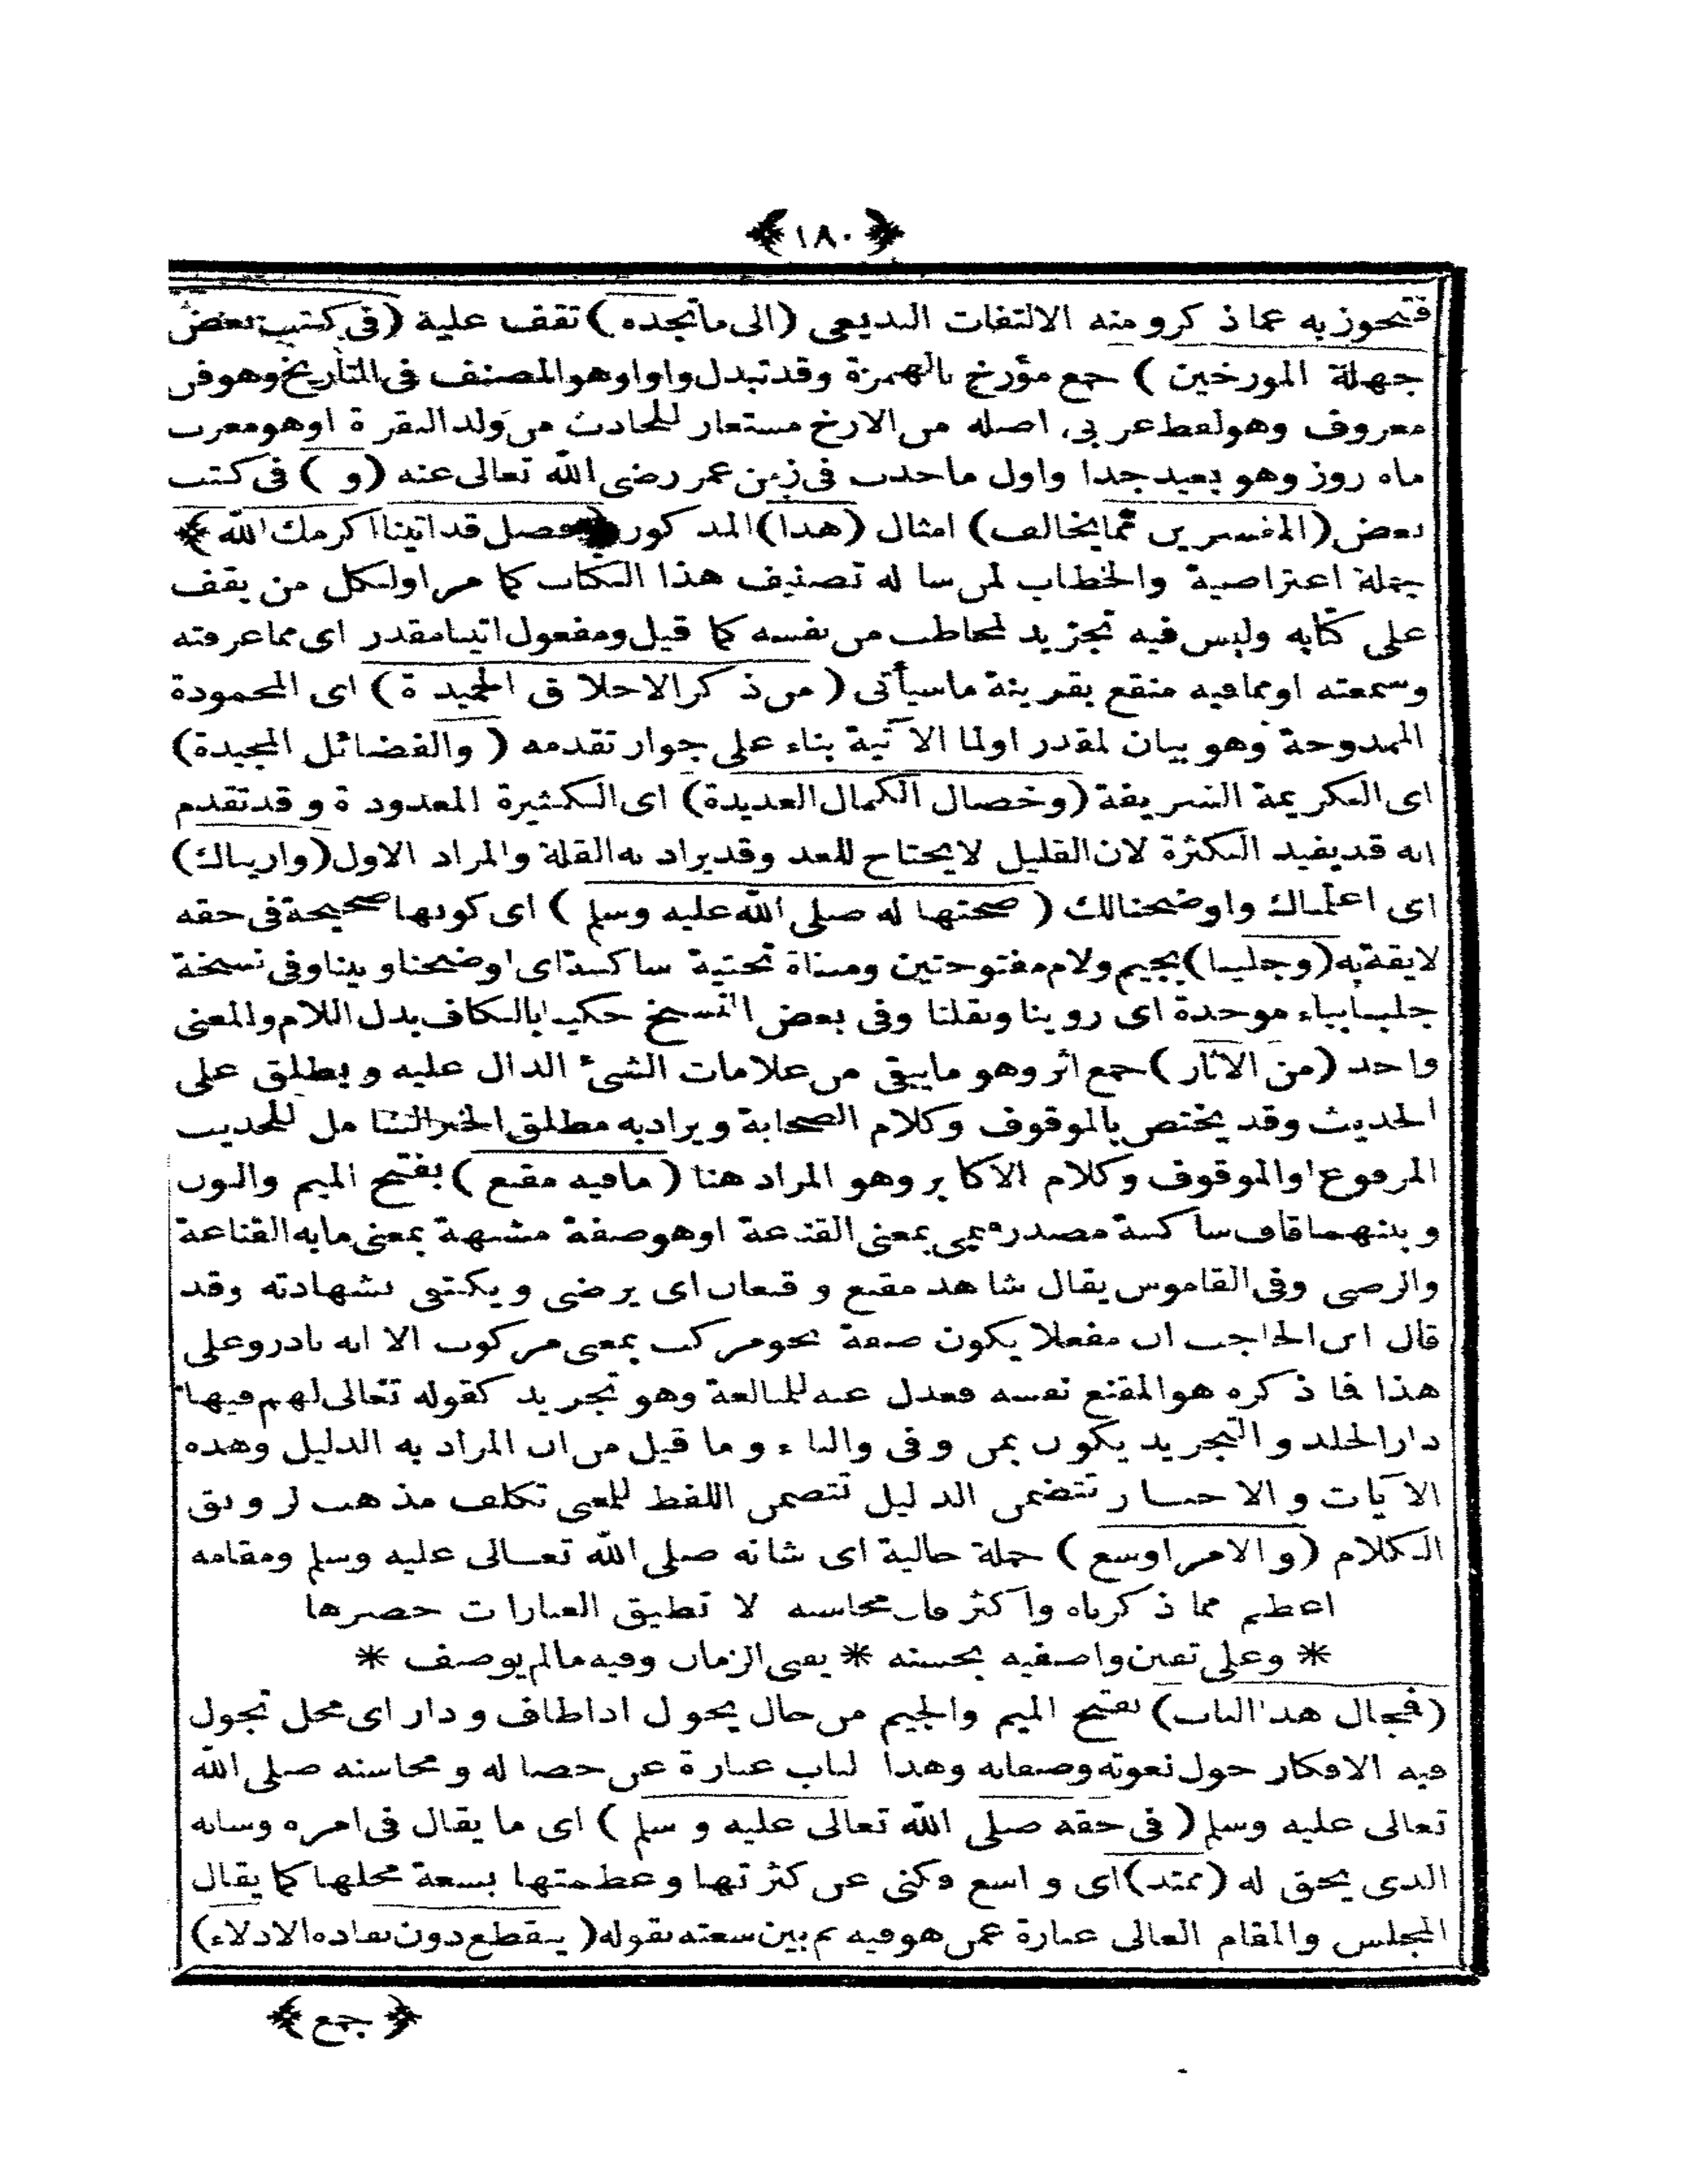 ﴿ ١٨٠ ﴾
فتحوز به عما ذكر ومنه الالتفات البديعى (الى ما تجده) تقف علية (فى كتب بعض
جهلة المورخين) جمع مؤرخ بالهمزة وقد تبدل واوا وهو المصنف فى التأريخ وهو فن
معروف وهو لفظ عربى اصله من الارخ مستعار للحادث من ولد البقرة او هو معرب
ماه روز وهو بعيد جدا واول ما حدث فى زمن عمر رضى الله تعالى عنه (و) فى كتب
بعض (المفسرين مما يخالف) امثال (هذا) المذكور ﴿ فصل قد اتينا اكرمك الله ﴾
جملة اعتراضية والخطاب لمن ساله تصنيف هذا الكتاب كما مر اولكل من يقف
على كتابه وليس فيه تجريد لمخاطب من نفسه كما قيل ومفعول اتينا مقدر اى مما عرفته
وسمعته او مما فيه منقع بقرينة ما سيأتى (من ذكر الاخلاق الحميدة) اى المحمودة
الممدوحة وهو بيان لمقدر اولما الآتية بناء على جوار تقدمه (والفضائل المجيدة)
اى الكريمة الشريفة (وخصال الكمال العديدة) اى الكثيرة المعدودة وقد تقدم
انه قد يفيد الكثرة لان القليل لا يحتاج للعد وقد يراد به القلة والمراد الاول (واريناك)
اى اعلمناك واوضحنالك (صحتها له صلى الله عليه وسلم) اى كونها صحيحة فى حقه
لايقة به (وجلينا) بجيم ولام مفتوحتين ومثناة تحتية ساكنة اى اوضحنا وبينا وفى نسخة
جلبنا بباء موحدة اى روينا ونقلنا وفى بعض النسخ حكينا بالكاف بدل اللام والمعنى
واحد (من الآثار) جمع اثر وهو ما يبقى من علامات الشئ الدال عليه ويطلق على
الحديث وقد يختص بالموقوف وكلام الصحابة ويراد به مطلق الخبر الشامل للحديث
المرفوع والموقوف وكلام الاكابر وهو المراد هنا (ما فيه مقنع) بفتح الميم والنون
وبينهما قاف ساكنة مصدر ميمى بمعنى القناعة او هو صفة مشبهة بمعنى ما به القناعة
والرضى وفى القاموس يقال شاهد مقنع وقنعان اى يرضى ويكتفى بشهادته وقد
قال ابن الحاجب ان مفعلا يكون صفة نحو مركب بمعنى مركوب الا انه نادر وعلى
هذا فما ذكره هو المقنع نفسه فعدل عنه للمبالغة وهو تجريد كقوله تعالى لهم فيها
دار الخلد و التجريد يكون بمن وفى والباء وما قيل من ان المراد به الدليل وهذه
الآيات و الاخبار تتضمن الدليل تتضمن اللفظ للمعنى تكلف مذهب لرونق
الكلام (و الامر اوسع) جملة حالية اى شانه صلى الله تعالى عليه وسلم ومقامه
اعظم مما ذكرناه واكثر فان محاسنه لا تطيق العبارات حصرها
* وعلى تفنن واصفيه بحسنه * يفنى الزمان وفيه مالم يوصف *
(فمجال هذا الباب) بفتح الميم والجيم من جال يجول اذا طاف ودار اى محل تجول
فيه الافكار حول نعوته وصفاته وهذا الباب عبارة عن خصاله ومحاسنه صلى الله
تعالى عليه وسلم (فى حقه صلى الله تعالى عليه وسلم) اى ما يقال فى امره وشانه
الذى يحق له (ممتد) اى واسع وكنى عن كثرتها وعظمتها بسعة محلها كما يقال
المجلس والمقام العالى عبارة عمن هو فيه ثم بين سعته بقوله (ينقطع دون نفاده الادلاء)
﴿ جمع ﴾